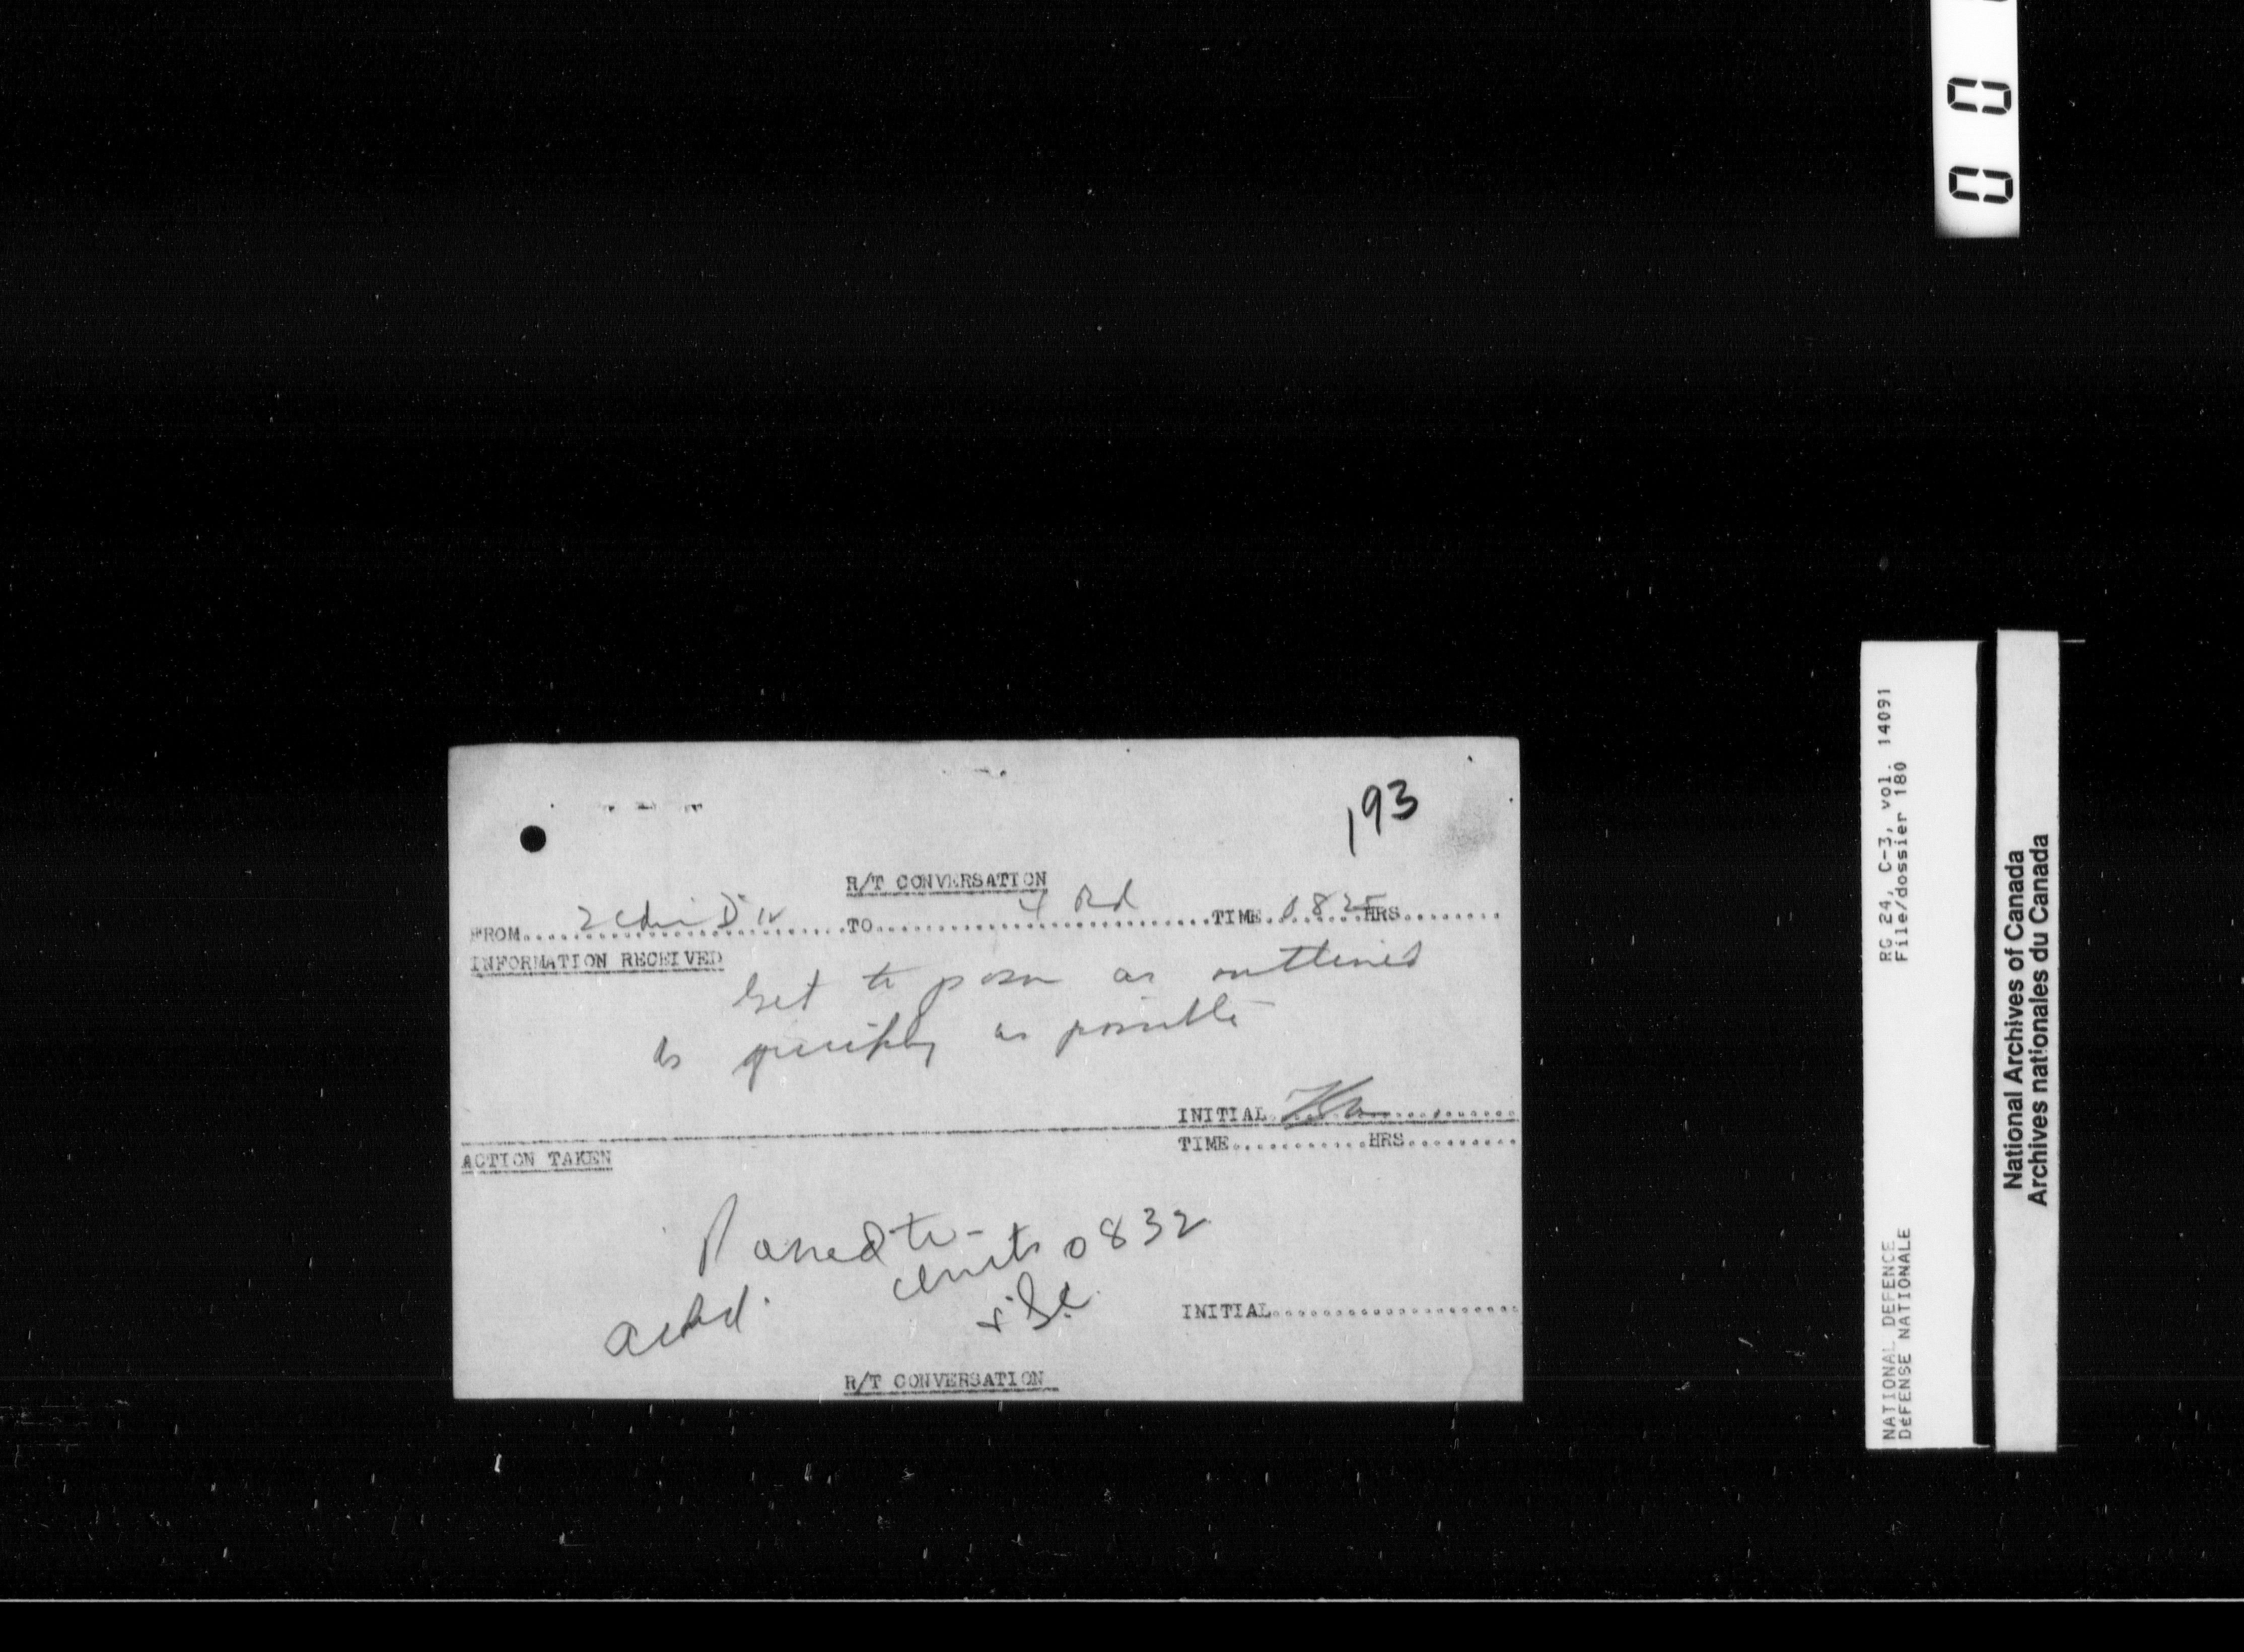 193
R/T CONVERSATION
FROM 2 Cdn Div TO 4 Bde TIME 0825 HRS
INFORMATION RECEIVED
Get to posn as outlined
as quickly as possible
INITIAL
TIME HRS
ACTION TAKEN
Passed to -
units 0832
ackd.
INITIAL
R/T CONVERSATION
0 0
RG 24, C-3, vol. 14091
File/dossier 180
NATIONAL DEFENCE
DéFENSE NATIONALE
National Archives of Canada
Archives nationales du Canada